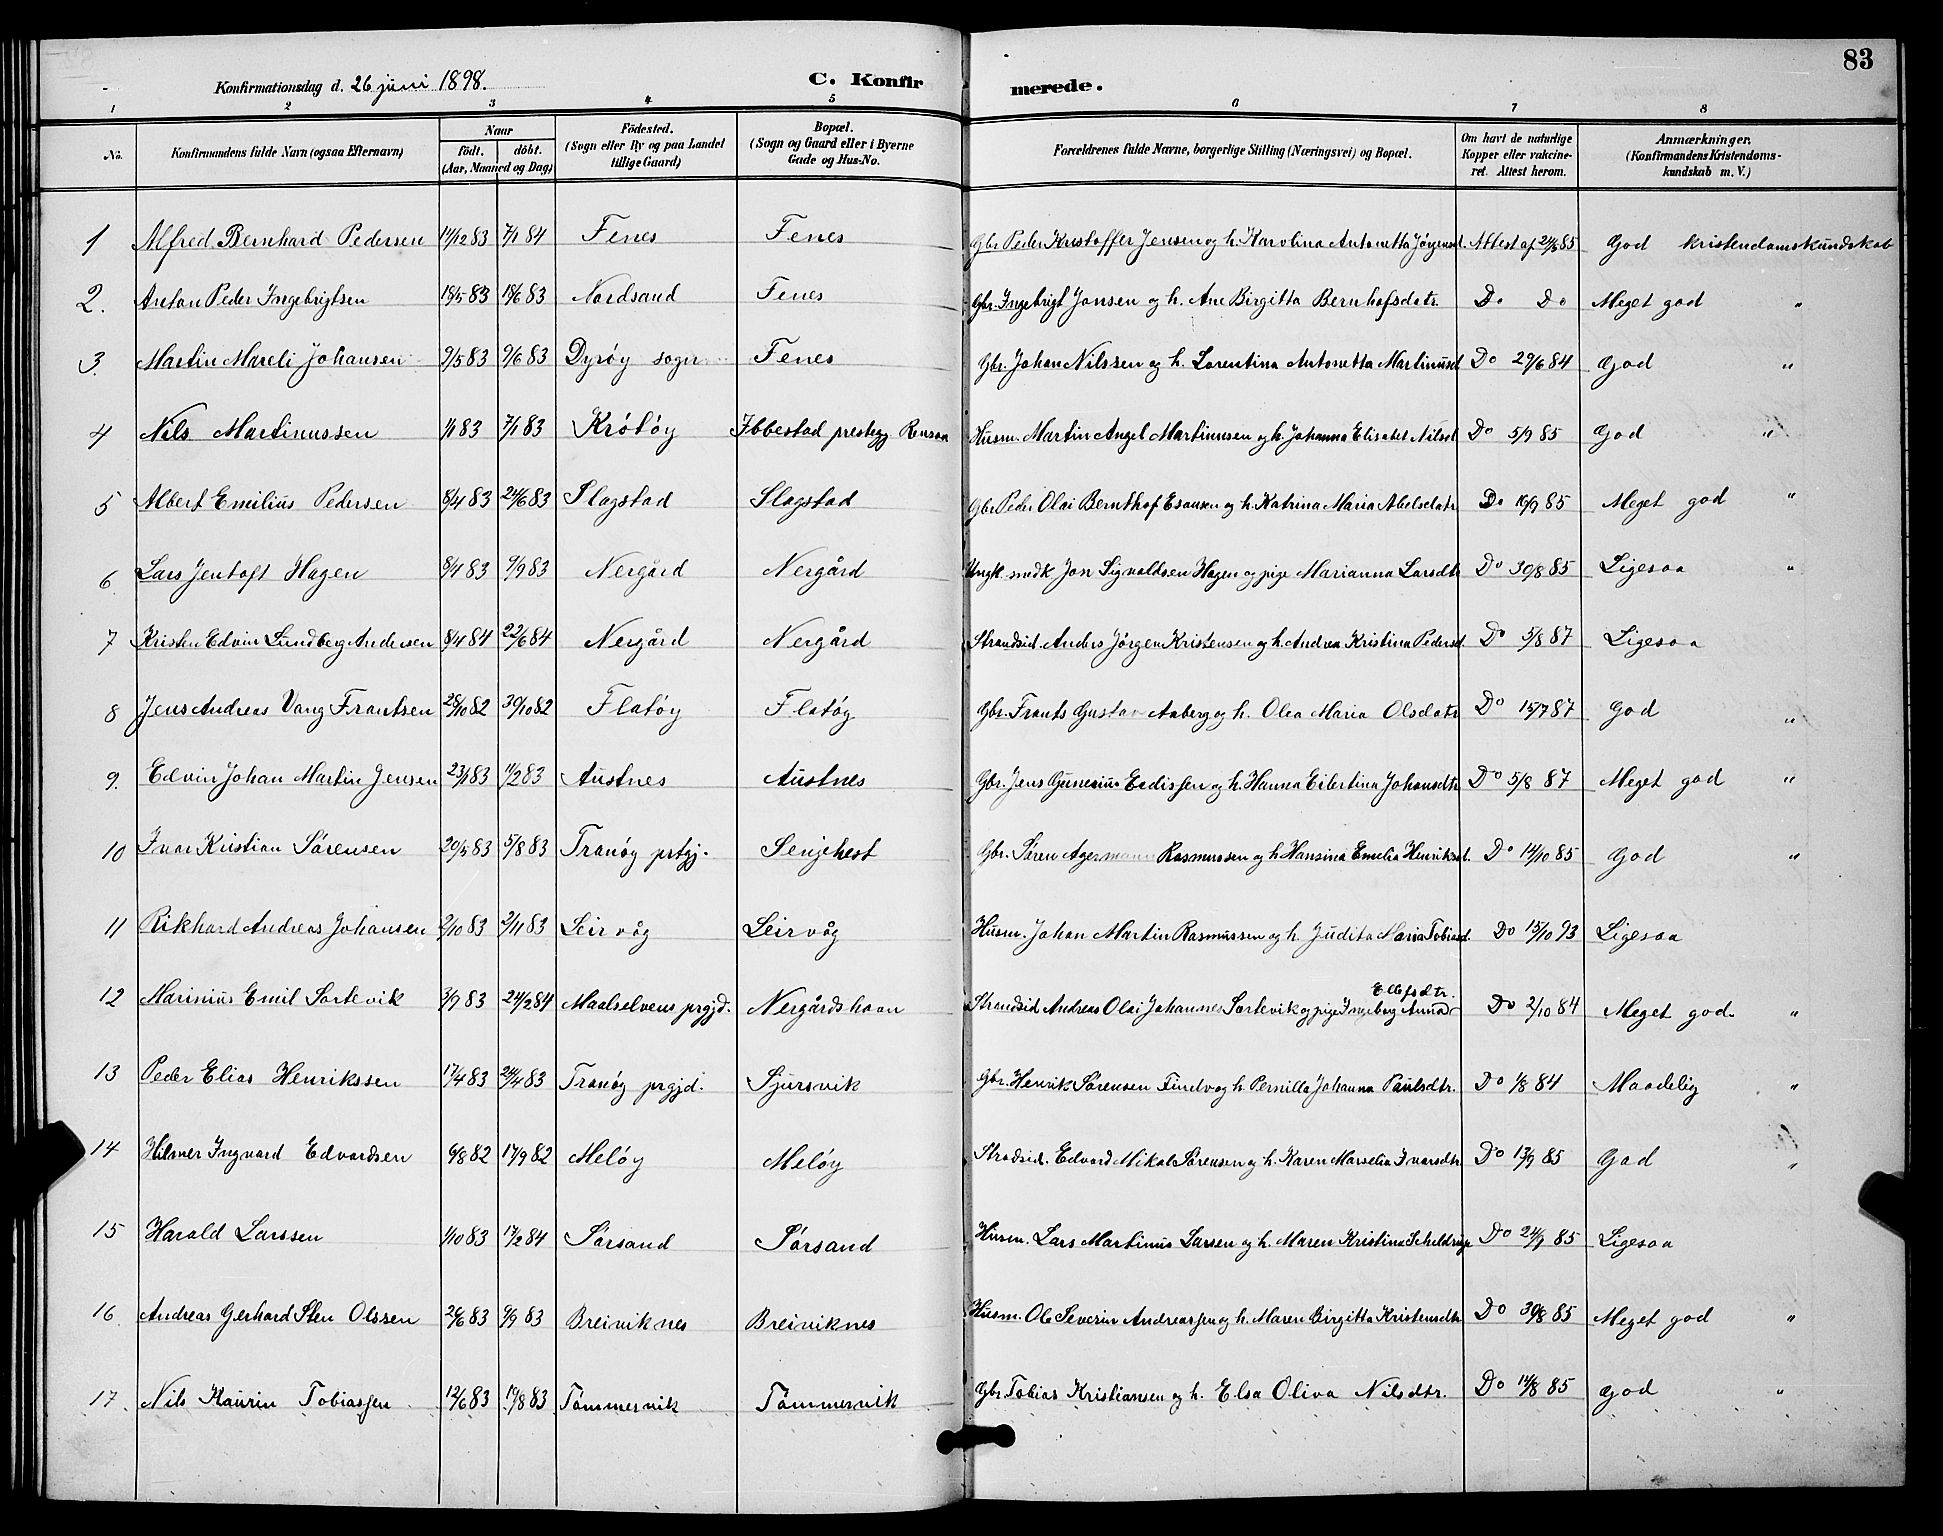 83
Konfirmationsdag d. 26 juni 1898. C. Konfirmerede.
1 2 3 4 5 6 7 8
No. Konfirmandens fulde Navn (ogsaa Efternavn) Naar födt. döbt. (Aar, Maaned og Dag) Födested. (Sogn eller By og paa Landet tillige Gaard) Bopæl. (Sogn og Gaard eller i Byerne Gade og Hus-No. Forældrenes fulde Navne, borgerlige Stilling (Næringsvei) og Bopæl. Om havt de naturlige Kopper eller vakcineret. Attest herom. Anmærkninger. (Konfirmandens Kristendomskundskab m. V.)
1 Alfred Bernhard Pedersen 11/12 83 7/1 84 Fenes Fenes Gbr. Peder Kristoffer Jensen og h. Karolina Antonetta Jørgensd. Attest af 24/8 85 God kristendomskundskab
2. Anton Peder Ingebrigtsen 18/5 83 18/6 83 Nordsand Fenes Gbr. Ingebrigt Jonsen og h. Ane Birgitta Bernhofsdatr. Do Do Meget god "
3. Martin Mareli Johansen 9/5 83 9/6 83 Dyróy sogn Fenes Gbr. Johan Nilssen og h. Lorentina Antonetta Martinusd. Do 29/6 84 God "
4 Nils Martinussen 1/1 83 7/1 83 Krótóy Ibbestad prestegj. Husm. Martin Angel Martinussen og h. Johanna Elisabet Nilsd. Do 5/9 85 God "
5 Albert Emilius Pedersen 8/4 83 24/6 83 Slagstad Slagstad Gbr. Peder Olai Bernthof Esausen og h. Katrina Maria Abelsdatr. Do 16/9 85 Meget god "
6. Lars Jentoft Hagen 8/4 83 9/9 83 Nergård Nergård Ungk. smdk Jon Sigvaldsen Hagen og pige Marianna Larsdtr. Do 30/8 85 Ligesaa "
7 Kristen Edvin Lundberg Andersen 8/4 84 22/6 84 Nergård Nergård Strandsid. Anders Jórgen Kristensen og h. Andrea Kristina Pedersd. Do 5/8 87 Ligesaa
8 Jens Andreas Vang Frantsen 28/10 82 30/10 82 Flatóy Flatóy Gbr. Frants Gustav Aaberg og h. Olea Maria Olsdatr. Do 15/7 87 God "
9. Edvin Johan Martin Jensen 23/1 83 11/2 83 Austnes Austnes Gbr. Jens Gunerius Eedissen og h. Hanna Eilertina Johansdtr. Do 5/8 87 Meget god "
10 Ivar Kristian Sórensen 20/5 83 5/8 83 Tranóy prtgj. Senjehest Gbr. Sóren Agermann Rasmussen og h. Hansina Emelia Henriksd. Do 14/10 85 God "
11 Rikhard Andreas Johansen 2/10 83 2/11 83 Leirvåg Leirvåg Husm. Johan Martin Rasmussen og h. Judita Maria Tobiasd. Do 15/10 93 Ligesaa
12 Marinius Emil Sortevik 3/9 83 24/2 84 Maalselvens prgjd. Nergårdshavn Strandsid Andreas Olai Johannes Sortevik og pige Ingeborg Anna Ellefsdtr. Do 2/10 84 Meget god. "
13 Peder Elias Henrikssen 17/4 83 24/4 83 Tranóy prgjd. Sjursvik Gbr. Henrik Sórensen Findvog h. Pernilla Johanna Paulsdtr. Do 1/8 84 Maadelig "
14 Hilmer Ingvard Edvardsen 6/8 82 17/9 82 Melóy Melóy Stradsid. Edvard Mikal Sórensen og h. Karen Marselia Ivarsdtr. Do 13/9 85 God "
15 Harald Larssen 1/10 83 17/2 84 Sórsand Sórsand Husm. Lars Martinus Larsen og h. Maren Kristina Scheldrup Do 24/9 85 Ligesaa
16. Andreas Gerhard Sten Olssen 26/6 83 9/9 83 Breiviknes Breiviknes Husm. Ole Severin Andreassen og h. Maren Birgitta Kristensdtr Do 30/8 85 Meget god "
17. Nils Kaurin Tobiassen 12/6 83 19/8 83 Tómmervik Tómmervik Gbr Tobias Kristiansen og h. Elsa Oliva Nilsdtr. Do 14/8 85 God "